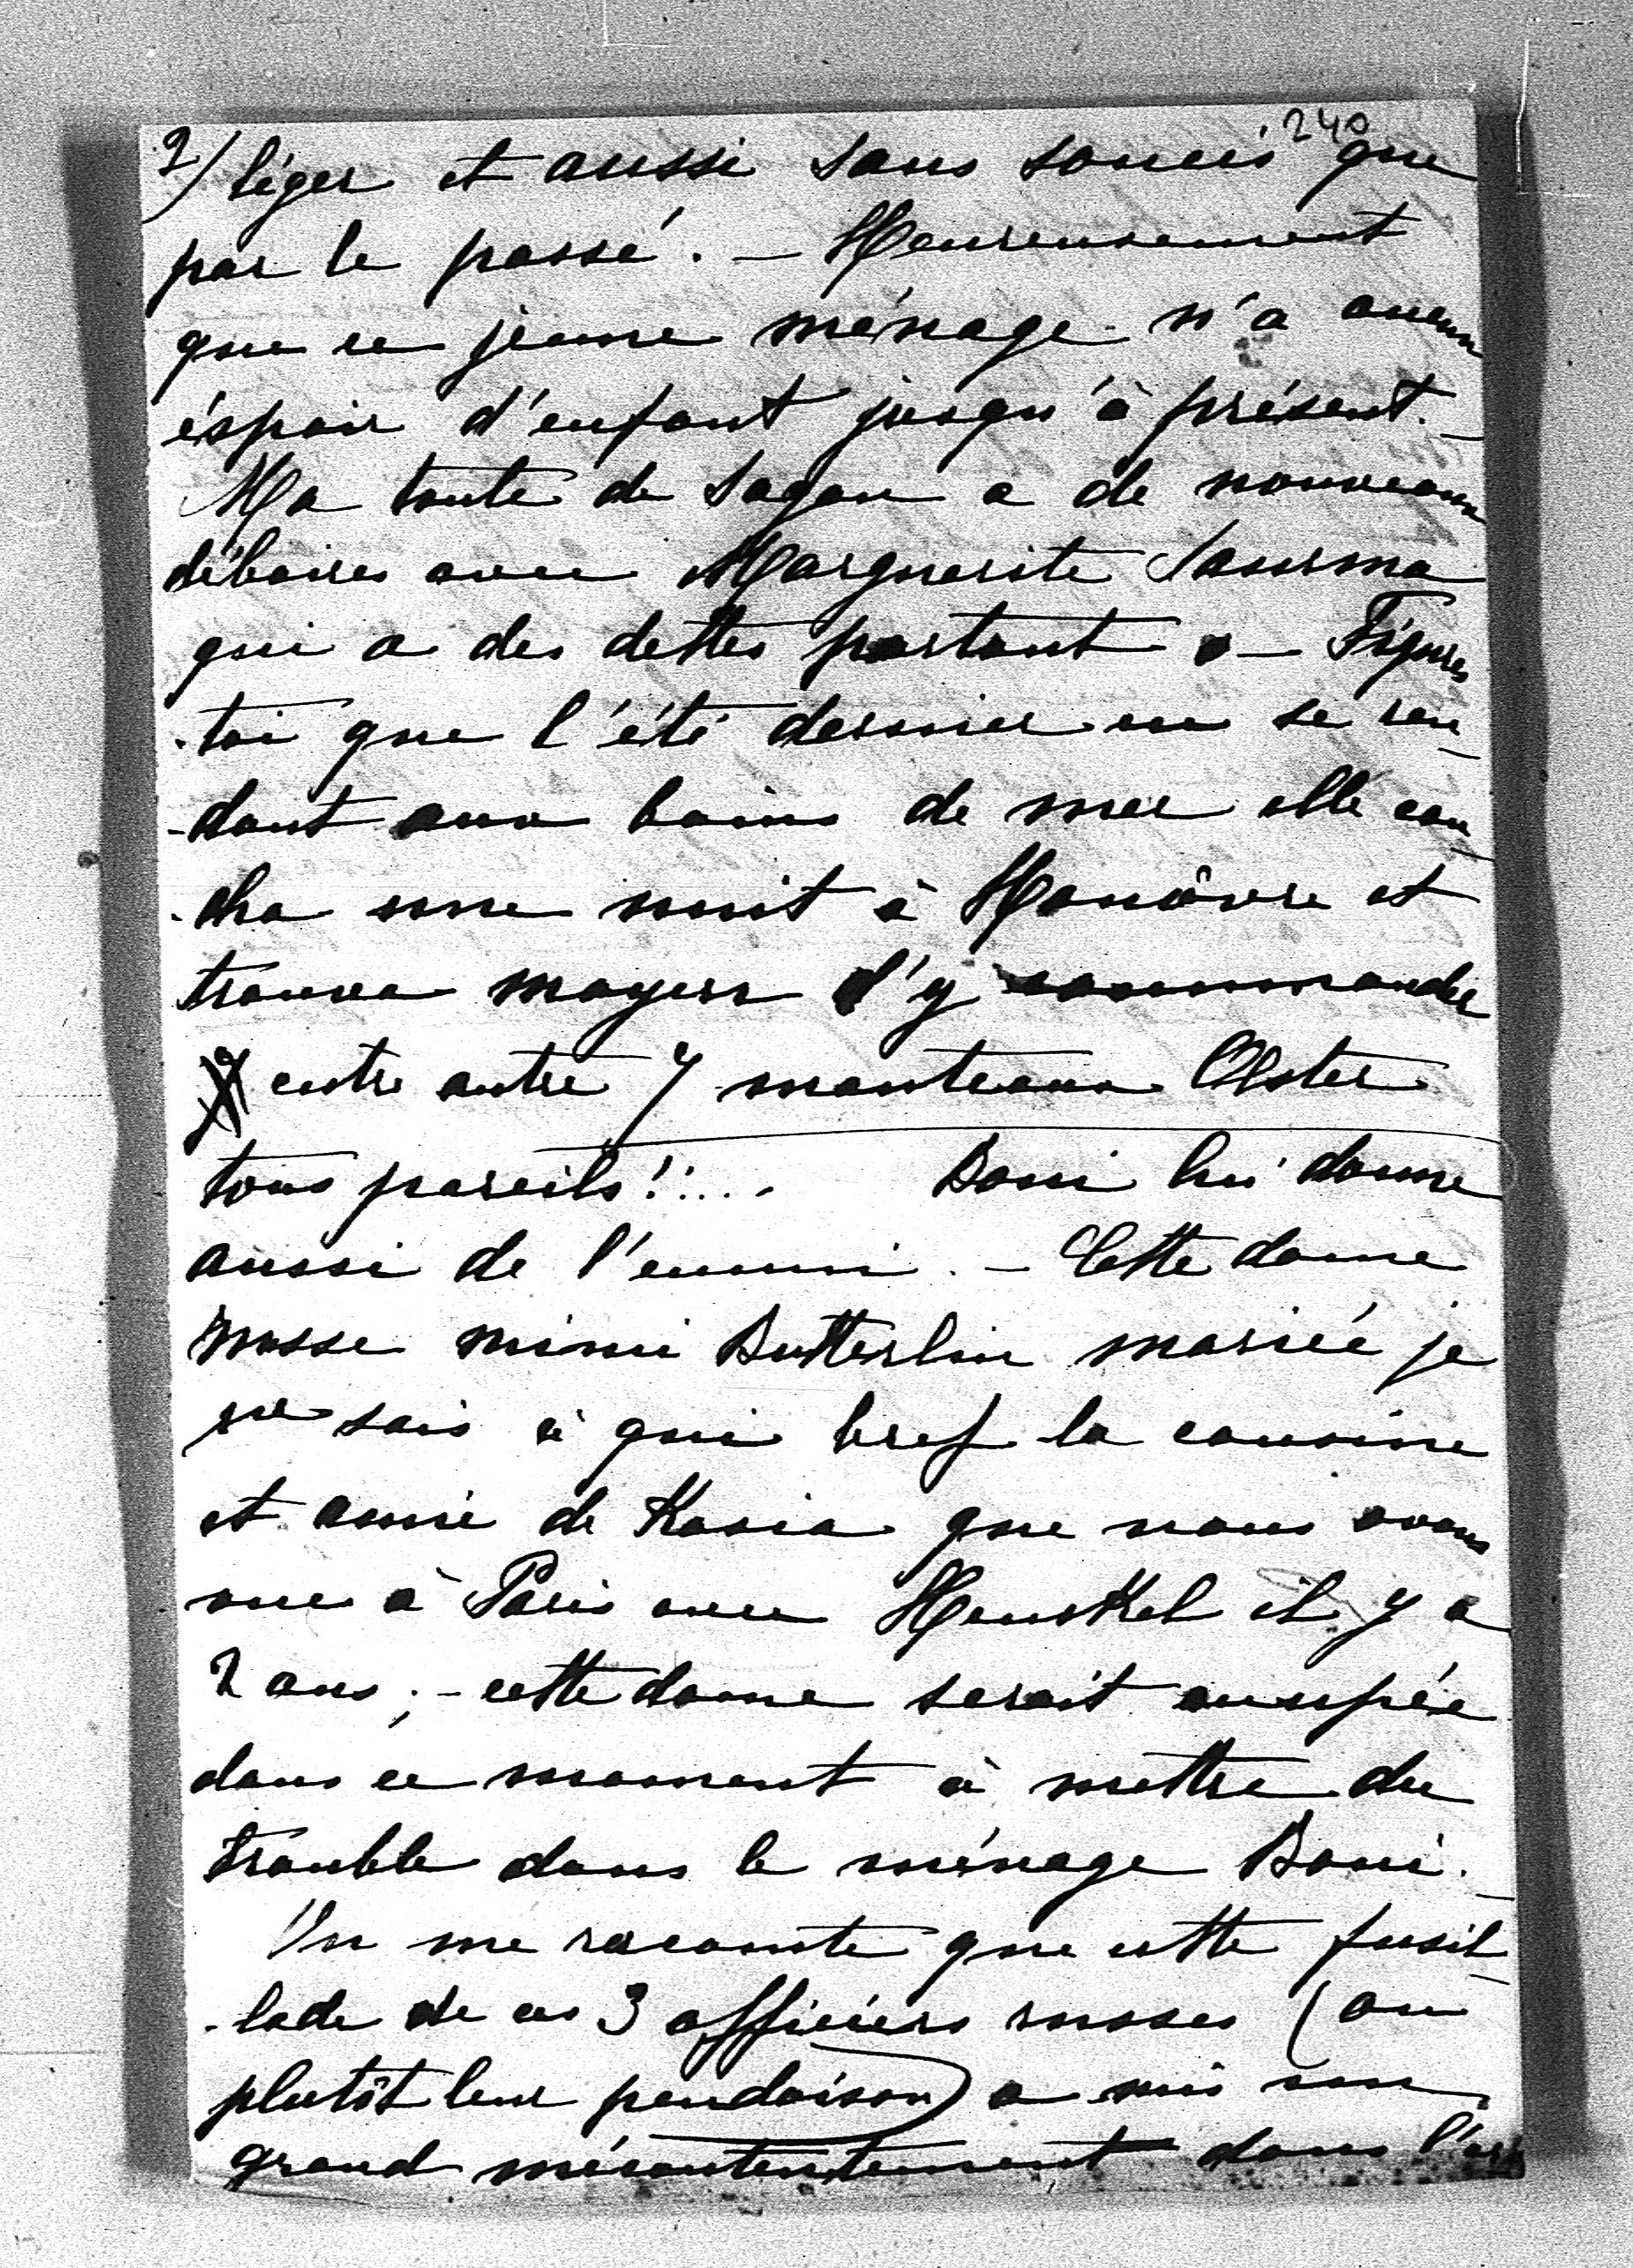 240
2/ léger et aussi sans soucis que
par le passé. — Heureusement
que ce jeune ménage n'a aucun
éspoir d'enfant jusqu'à présent. —
Ma tante de Sagan a de nouveaux
déboires avec Marguerite Saurma
qui a des dettes partout. — Figures
-toi que l'été dernier en se ren-
-dant aux bains de mer elle cou-
-cha une nuit à Hanôvre et
trouva moyen d'y commander
entre autre 7 manteaux Ulster
tous pareils!.... Boni lui donne
aussi de l'ennui. — Cette dame
russe Mimi Butterlin mariée je
ne sais à qui bref la cousine
et amie de Kasia que nous avons
vue à Paris avec Henckel il y a
2 ans; — cette dame serait occupée
dans ce moment à mettre du
trouble dans le ménage Boni. —
On me raconte que cette fusil-
-lade de ces 3 officiers russes (ou
plutôt leur pendaison) a mis un
grand mécontentement dans l'ar